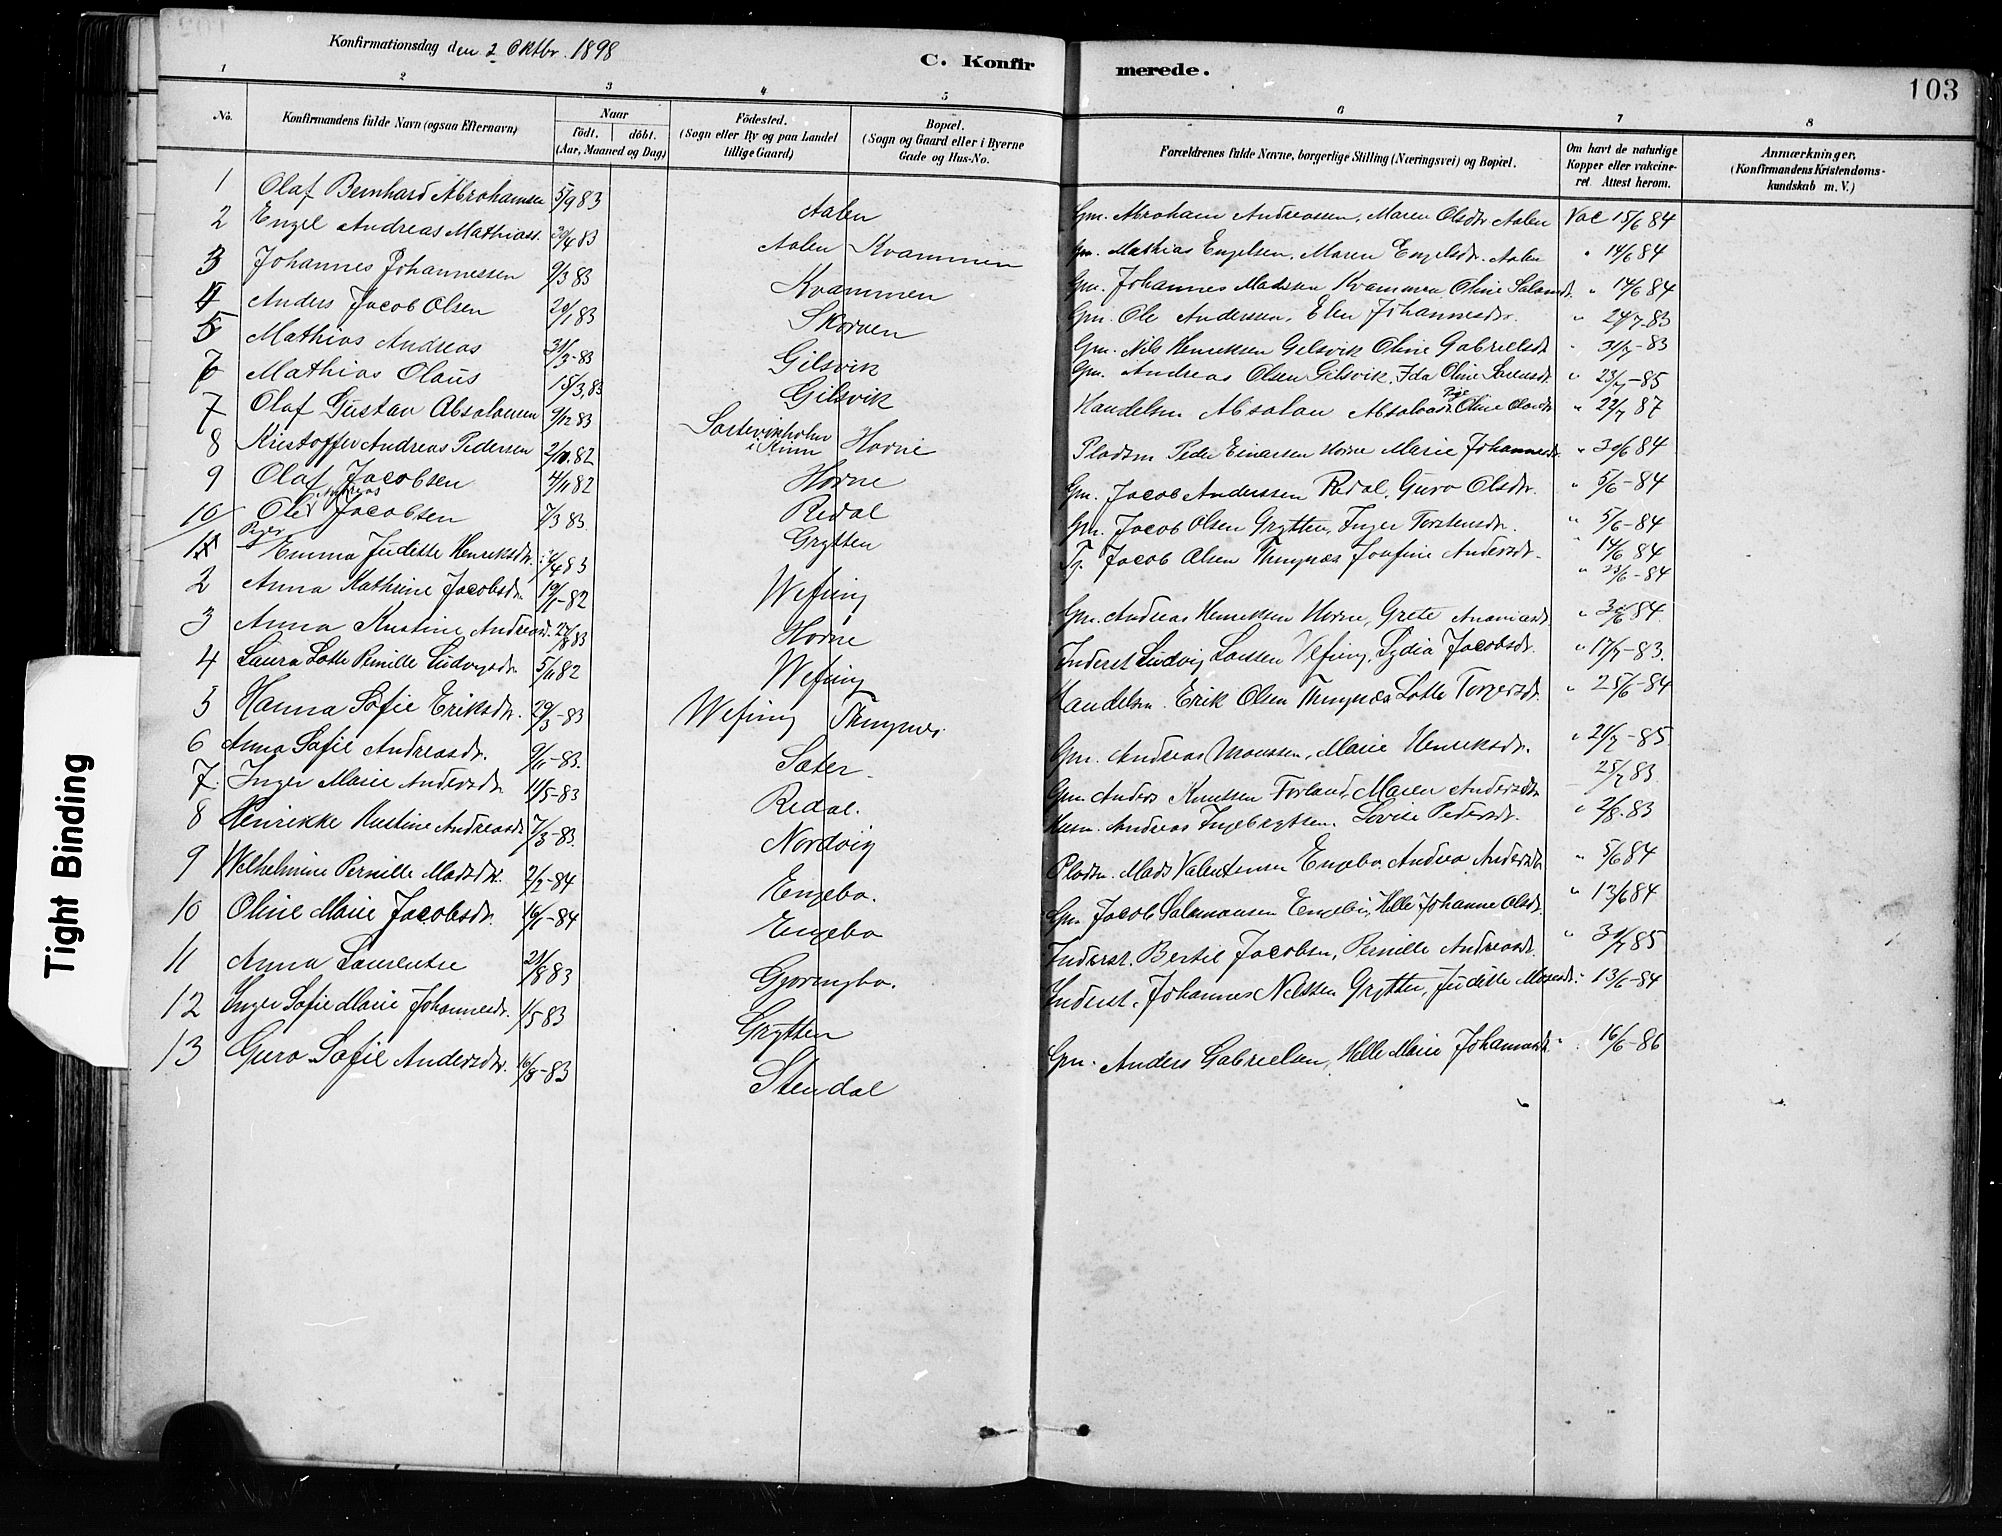 103
Konfirmationsdag den 2 Oktbr. 1898
C. Konfirmerede.
1 2 3 4 5 6 7 8
No.
Konfirmandens fulde Navn (ogsaa Efternavn)
Naar
födt. döbt.
(Aar, Maaned og Dag)
Födested.
(Sogn eller By og paa Landet tillige Gaard)
Bopæl.
(Sogn og Gaard eller i Byerne Gade og Hus-No.
Forældrenes fulde Navne, borgerlige Stilling (Næringsvei) og Bopæl.
Om havt de naturlige Kopper eller vakcineret. Attest herom.
Anmærkninger.
(Konfirmandens Kristendomskundskab m. V.)
1 Olaf Bernhard Abrahamsen 5/9 83 Aalen Gm. Abraham Andreassen, Maren Olsdtr Aalen Vac 15/6 84
2 Engel Andreas Mathiass. 30/4 83 Aalen Kvammen Gm. Mathias Engelsen, Maren Engelsdtr. Aalen " 14/6 84
3 Johannes Johannessen 9/3 83 Kvammen Gm. Johannes Madssen Kvammen, Oline Salamdtr. " 14/6 84
4 Anders Jacob Olsen 20/1 83 Skorven Gm. Ole Anderssen, Elen Johannesdtr. " 24/7-83
5 Mathias Andreas 31/3-83 Gilsvik Gm. Nils Henriksen Gilsvik Oline Gabrielsdtr " 31/7-83
6 Mathias Olaus 15/3 83 Gilsvik Gm. Andreas Olsen Gilsvik, Ida Oline Sorensdtr. " 23/7-85
7 Olaf Gustav Absalonsen 9/12 83 i Kinn Horne Handelsm Absalon Absalonsen Oline Olsdtr " 22/7 87
8 Kristoffer Andreas Pedersen 2/11.82 Horne Pladsm Peder Einarsen Horne Marie Johannesdtr " 30/6 84
9 Olaf Jacobsen 4/11 82 Redal Gm. Jacob Anderssen Redal, Guro Olsdtr. " 5/6-84
10 Ole Andreas Jacobsen 7/3 83. Grytten Gm. Jacob Olsen Grytten, Inger Torstensdtr. " 5/6-84
Piger
1 Emma Juditte Henriksdtr. /4 83 Wefring Tj. Jacob Olsen Thingnæs Josefine Andersdtr. " 14/6 84
" 23/6-84
2 Anna Kathrine Jacobsdtr. 19/1-82 Horne Gm. Andreas Henriksen Horne, Grete Ananiasdtr. " 30/6 84.
3 Anna Kristine Andreasdtr. 27/8 83 Wefring Inderst Ludvig Larssen Vefring, Lydia Jacobsdtr. " 17/7-83.
4 Laura Lotte Pernille Ludvigsdtr. 5/11 82 Wefring Thingnes. Handelsm. Erik Olsen Thingnæs Lotte Torgersdtr. " 25/6-84
5 Hanna Sofie Eriksdtr. 29/3-83 Sæter. Gm. Andreas Monssen, Marie Henriksdtr. " 21/7-85
6 Anna Sofie Andreasdtr. 9/11-83. Redal. Gm. Anders Knudsen Forland, Maren Andersdtr. 25/7 83.
7. Inger Marie Andersdtr. 11/5-83 Nordvig Husm. Andreas Ingebrigtsen. Lovise Pedersdtr. " 2/8-83
8 Henrikke Kristine Andreasdtr 7/3-83. Engebo. Pladsm. Mads Valentinsen Engebo, Andrea Andersdtr " 5/6 84
9 Wilhelmine Pernille Madsdtr. 2/2-84 Engebo Gm. Jacob Salamonsen Engebø, Helle Johanne Olsdtr. " 13/6 84
10 Oline Marie Jacobsdtr. 16/1-84 Gjørengbo. Inderst. Bertil Jacobsen, Pernille Andreasdtr. " 31/7 85
11 Anna Laurentse 21/8 83 Grytten Inderst. Johannes Nilssen Grytten, Juditte Monsdtr. " 13/6-84
12 Inger Sofie Marie Johannesdtr. 1/5 83 Stendal Gm. Anders Gabrielsen, Helle Marie Johannesdtr. " 16/6-86
13 Guro Sofie Andersdtr. 16/8-83
Tight Binding